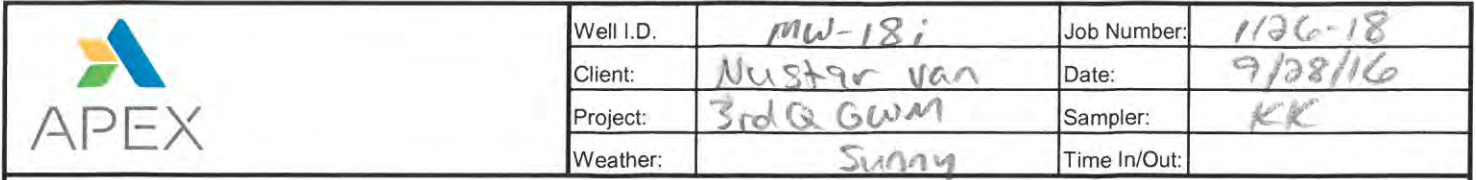 APEX
Well I.D. MW-18i Job Number: 1126-18
Client: Nustar Van Date: 9/28/16
Project: 3rd Q GWM Sampler: KK
Weather: Sunny Time In/Out: